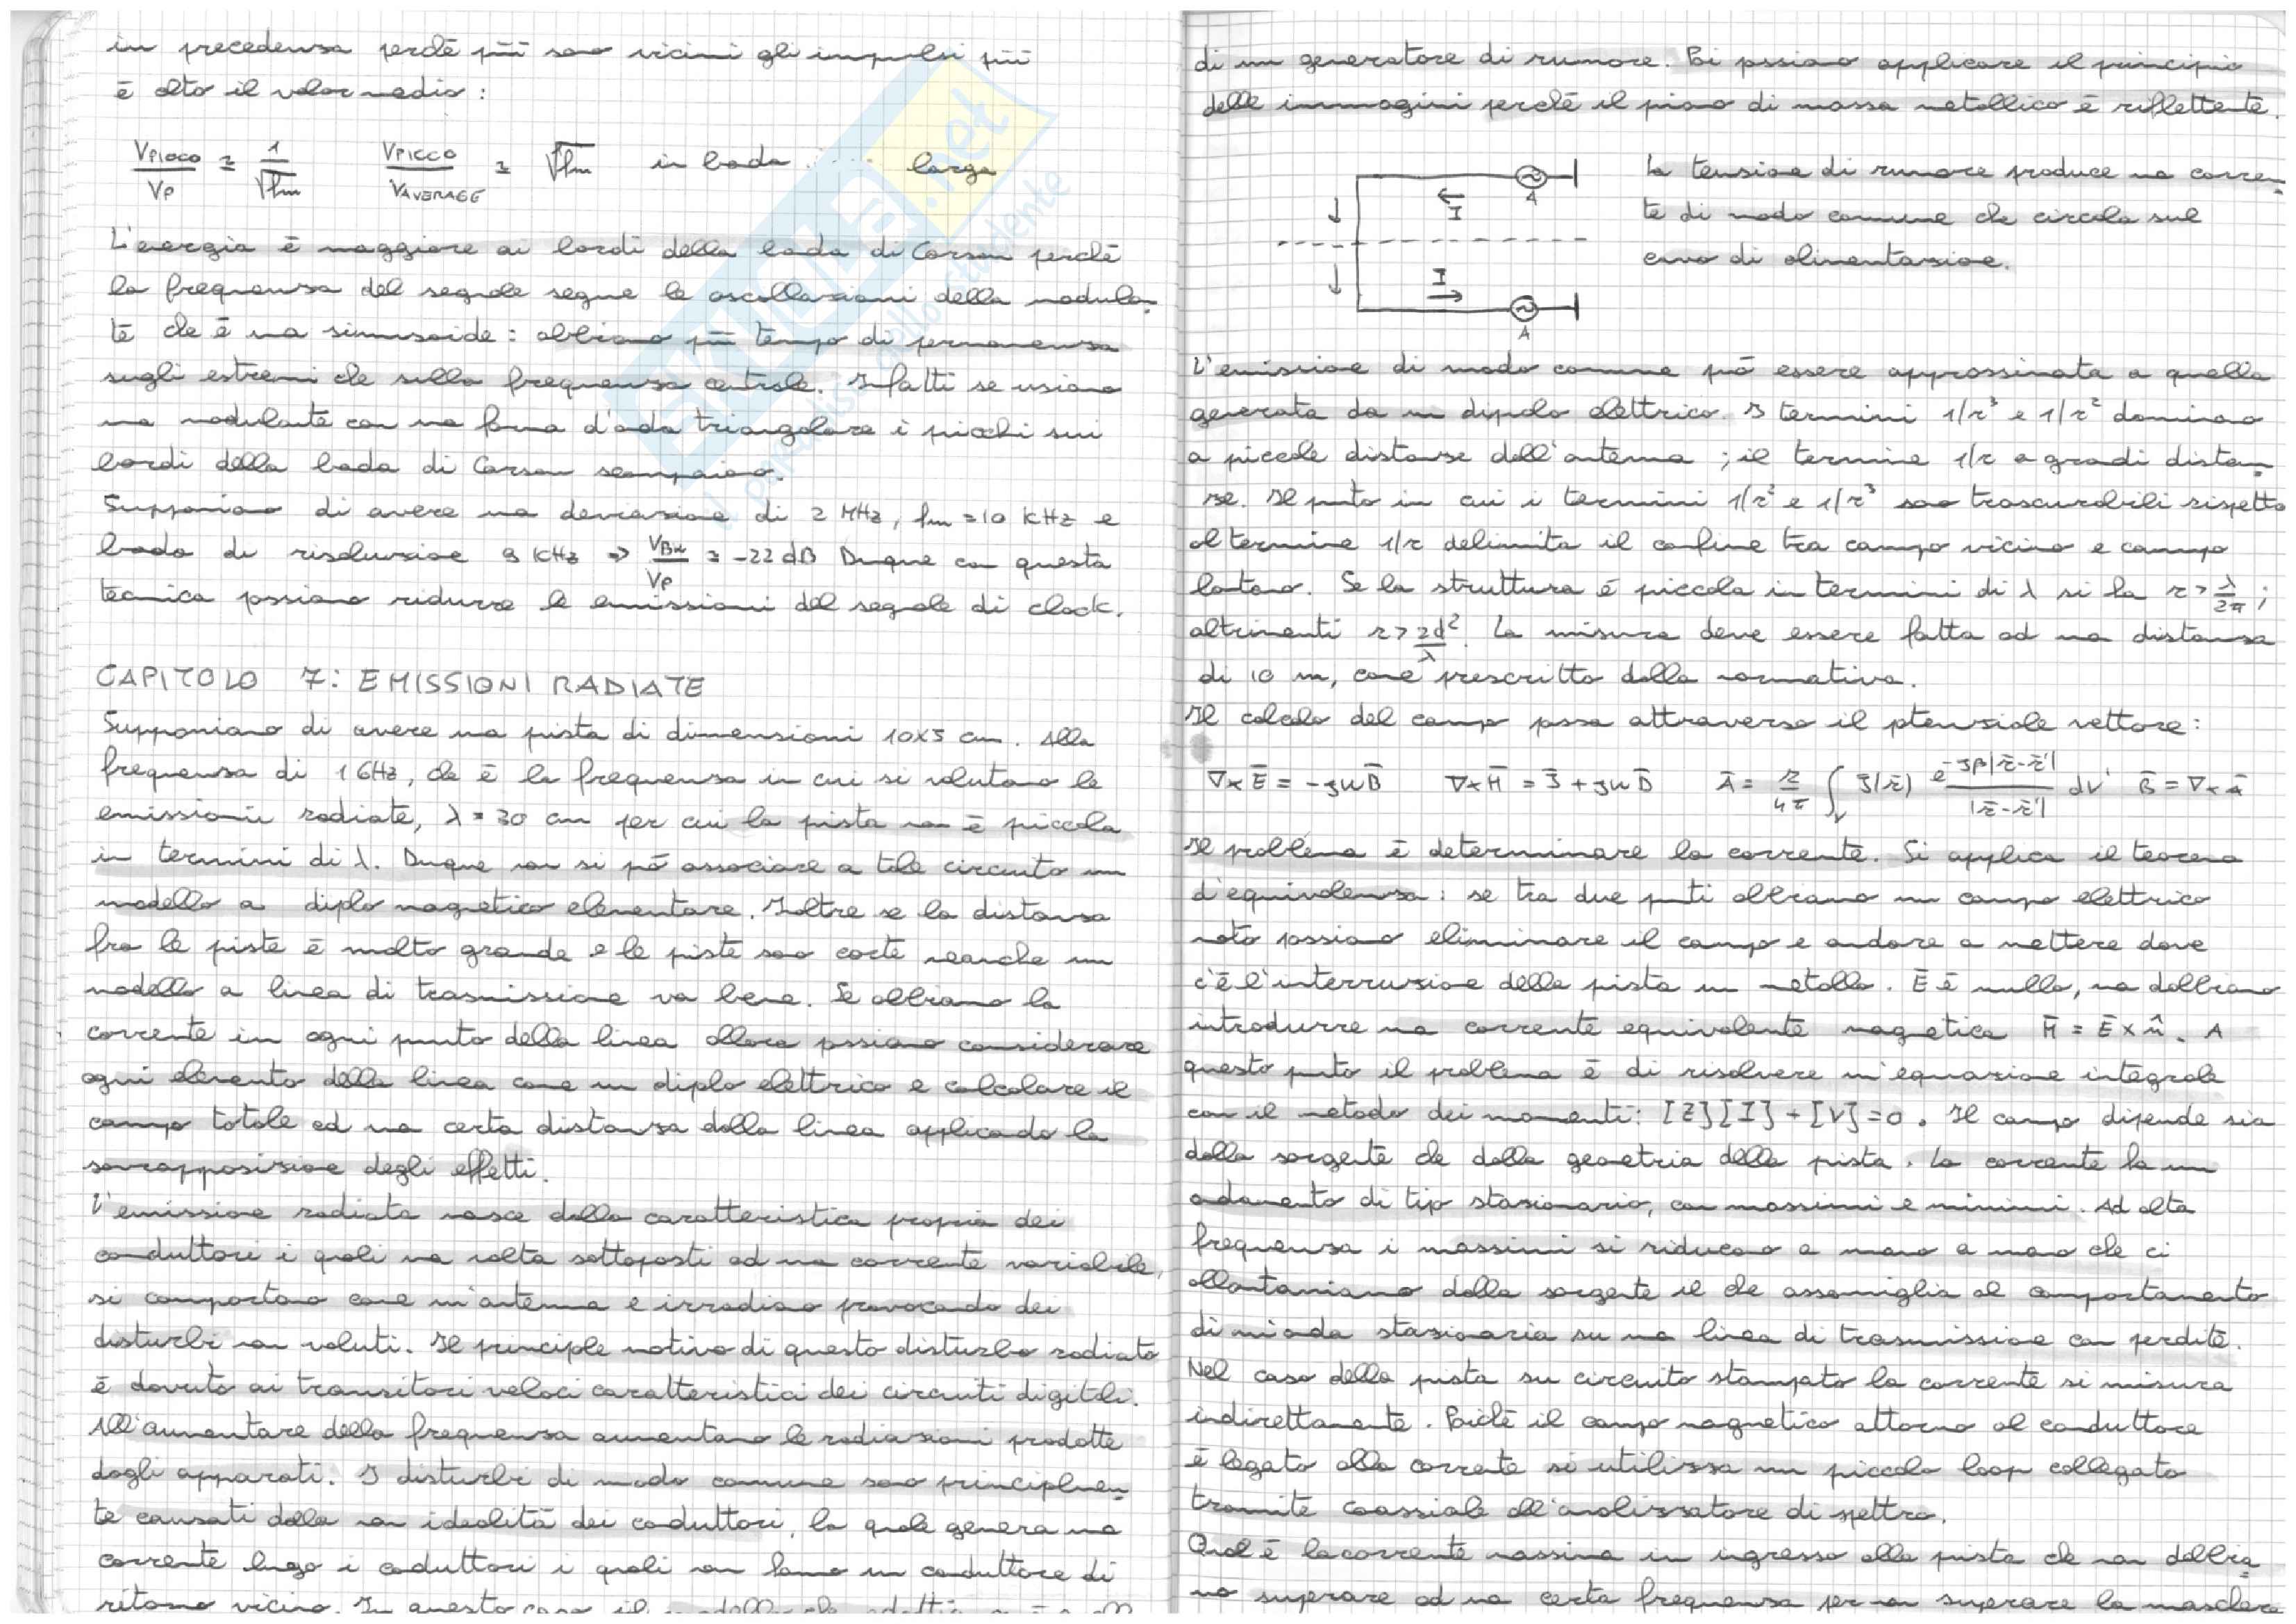 in precedenza perchè più sono vicini gli impulsi più
è alto il valor medio :
VPICCO / VP = 1 / √fm VPICCO / VAVERAGE = √fm in banda larga
L'energia è maggiore ai bordi della banda di Carson perchè
la frequenza del segnale segue le oscillazioni della modulan-
te che è una sinusoide : abbiamo più tempo di permanenza
sugli estremi che sulla frequenza centrale. Infatti se usiamo
una modulante con una forma d'onda triangolare i picchi sui
bordi della banda di Carson scompaiono.
Supponiamo di avere una deviazione di 2 MHz, fm = 10 KHz e
banda di risoluzione 9 KHz ⇒ VBW / VP = -22 dB Dunque con questa
tecnica possiamo ridurre le emissioni del segnale di clock.
CAPITOLO 7: EMISSIONI RADIATE
Supponiamo di avere una pista di dimensioni 10x5 cm. Alla
frequenza di 1 GHz, che è la frequenza in cui si valutano le
emissioni radiate, λ = 30 cm per cui la pista non è piccola
in termini di λ. Dunque non si può associare a tale circuito un
modello a dipolo magnetico elementare. Inoltre se la distanza
fra le piste è molto grande e le piste sono corte neanche un
modello a linea di trasmissione va bene. Se abbiamo la
corrente in ogni punto della linea allora possiamo considerare
ogni elemento della linea come un dipolo elettrico e calcolare il
campo totale ad una certa distanza dalla linea applicando la
sovrapposizione degli effetti.
L'emissione radiata nasce dalla caratteristica propria dei
conduttori i quali una volta sottoposti ad una corrente variabile,
si comportano come un'antenna e irradiano provocando dei
disturbi non voluti. Il principale motivo di questo disturbo radiato
è dovuto ai transitori veloci caratteristici dei circuiti digitali.
All'aumentare della frequenza aumentano le radiazioni prodotte
dagli apparati. I disturbi di modo comune sono principalmen-
te causati dalla non idealità dei conduttori, la quale genera una
corrente lungo i conduttori i quali non hanno un conduttore di
ritorno vicino. In questo caso il modello che
di un generatore di rumore. Poi possiamo applicare il principio
delle immagini perchè il piano di massa metallico è riflettente.
A
I
I
A
La tensione di rumore produce una corren-
te di modo comune che circola sul
cavo di alimentazione.
L'emissione di modo comune può essere approssimata a quella
generata da un dipolo elettrico. I termini 1/r³ e 1/r² dominano
a piccole distanze dall'antenna ; il termine 1/r a grandi distan-
ze. Il punto in cui i termini 1/r² e 1/r³ sono trascurabili rispetto
al termine 1/r delimita il confine tra campo vicino e campo
lontano. Se la struttura è piccola in termini di λ si ha r > λ/2π ;
altrimenti r > 2d²/λ. La misura deve essere fatta ad una distanza
di 10 m, come prescritto dalla normativa.
Il calcolo del campo passa attraverso il potenziale vettore :
∇×Ē = -jωB̄ ∇×H̄ = J̄ + jωD̄ Ā = μ/4π ∫v J̄(r̄) e^(-jβ|r̄-r̄'|) / |r̄-r̄'| dV' B̄ = ∇×Ā
Il problema è determinare la corrente. Si applica il teorema
d'equivalenza : se tra due punti abbiamo un campo elettrico
noto possiamo eliminare il campo e andare a mettere dove
c'è l'interruzione della pista un metallo. Ē è nullo, ma dobbiamo
introdurre una corrente equivalente magnetica M̄ = Ē × n̂. A
questo punto il problema è di risolvere un'equazione integrale
con il metodo dei momenti: [Z][I] + [V] = 0. Il campo dipende sia
dalla sorgente che dalla geometria della pista. La corrente ha un
andamento di tipo stazionario, con massimi e minimi. Ad alta
frequenza i massimi si riducono a mano a mano che ci
allontaniamo dalla sorgente il che assomiglia al comportamento
di un'onda stazionaria su una linea di trasmissione con perdite.
Nel caso della pista su circuito stampato la corrente si misura
indirettamente. Poichè il campo magnetico attorno al conduttore
è legato alla corrente si utilizza un piccolo loop collegato
tramite coassiale all'analizzatore di spettro.
Qual è la corrente massima in ingresso alla pista che non dobbia-
mo superare ad una certa frequenza per non superare la maschera
SKUOLA.net
il paradiso dello studente